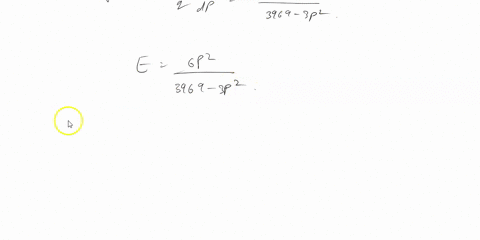 q dp 3969-3p²
E = 6p² / 3969-3p².